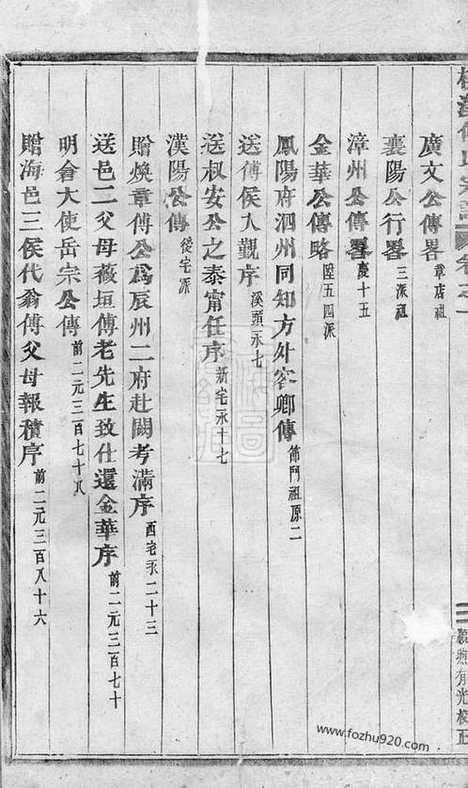 卷之一
廣文公傳畧 章店祖
襄陽公行畧 三派祖
漳州公傳畧 慶十五
金華公傳略 陸五四派
鳳陽府泗州同知方外客卿傳 飾門祖原二
送傅侯入覲序 溪頭永七
送叔安公之泰甯任序 新宅永十七
漢陽公傳 從宅派
贈煥章傅公爲辰州二府赴闕考滿序 西宅永二十三
送邑二父母薇垣傅老先生致仕還金華序 前二元三百七十
明會大使岳宗公傳 前二元三百七十八
贈海邑三侯代翁傅父母報積序 前二元三百八十六
有光校正
www.fozhu920.com